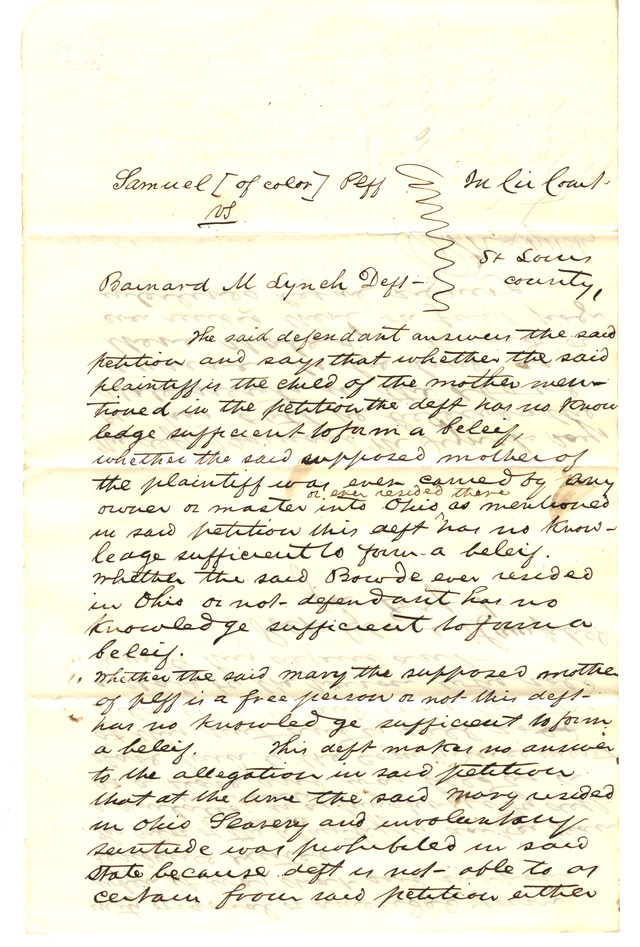 Samuel [of color] Plff In Cir Court
vs
St Louis
Barnard M Lynch Deft - county,
The said defendant answers the said
petition and says that whether the said
plaintiff is the child of the mother men-
tioned in the petition the deft has no know
ledge sufficient to form a beleif,
whether the said supposed mother of
the plaintiff was ever carried by any
or ever resided there
owner or master into Ohio ^ as mentioned
in said petition this deft has no know-
ledge sufficient to form a beleif.
Whether the said Bowde ever resided
in Ohio or not - defendant has no
knowledge sufficient to form a
beleif.
Whether the said mary the supposed mother
of plff is a free person or not this deft
has no knowledge sufficient to form
a beleif. This deft makes no answer
to the allegation in said petition
that at the time the said Mary resided
in Ohio Slavery and involuntary
servitude was prohibited in said
State because deft is not - able to as
certain from said petition either